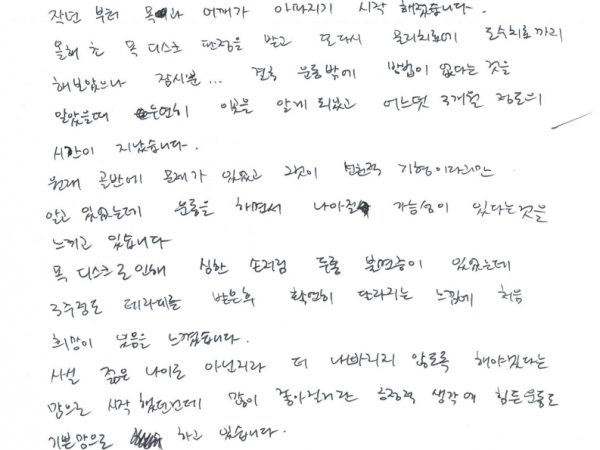 작년 부터 목과 어깨가 아파지기 시작 해졌습니다.
올해 초 목 디스크 판정을 받고 또다시 물리치료에 도수치료까지
해보았으나 잠시뿐... 결국 운동밖에 방법이 없다는 것을
알았을때 우연히 이곳을 알게 되었고 어느덧 3개월 정도의
시간이 지났습니다.
원래 골반에 문제가 있었고 그것이 선천적 기형이라지만
알고 있었는데 운동을 하면서 나아질 가능성이 있다는것을
느끼고 있습니다
목 디스크로 인해 심한 손저림 두통 불면증이 있었는데
3주정도 테라피를 받은후 확연히 달라지는 느낌에 처음
희망이 넘음을 느꼈습니다.
사실 젊은 나이도 아닌지라 더 나빠지지 않도록 해야겠다는
맘으로 시작 했던건데 많이 좋아진거란 긍정적 생각에 힘든운동도
기쁜맘으로 하고 있습니다.